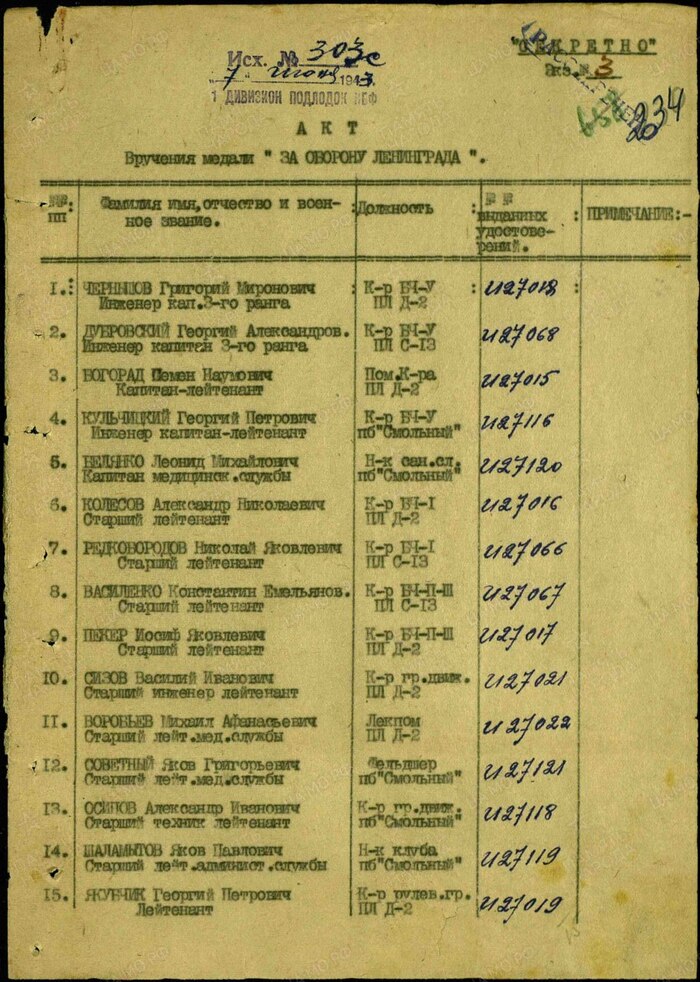 "СЕКРЕТНО"
Экз.№ 3
Исх. № 303с
7 июня 1943
1 ДИВИЗИОН ПОДЛОДОК КБФ
234
АКТ
Вручения медали " ЗА ОБОРОНУ ЛЕНИНГРАДА ".
№№ пп : Фамилия имя,отчество и воен-ное звание. : Должность : №№ выданных удостове-рений. : ПРИМЕЧАНИЕ:-
1. ЧЕРНЫШОВ Григорий Миронович : К-р БЧ-У : И27018 :
Инженер кап.3-го ранга ПЛ Д-2
2. ДУБРОВСКИЙ Георгий Александров. К-р БЧ-У И27068
Инженер капитан 3-го ранга ПЛ С-13
3. БОГОРАД Семен Наумович Пом.К-ра И27015
Капитан-лейтенант ПЛ Д-2
4. КУЛЬЧИЦКИЙ Георгий Петрович К-р БЧ-У И27116
Инженер капитан-лейтенант пб"Смольный"
5. БЕЛЯНКО Леонид Михайлович Н-к сан.сл. И27120
Капитан медицинск.службы пб"Смольный"
6. КОЛЕСОВ Александр Николаевич К-р БЧ-I И27016
Старший лейтенант ПЛ Д-2
7. РЕДКОБОРОДОВ Николай Яковлевич К-р БЧ-I И27066
Старший лейтенант ПЛ С-13
8. ВАСИЛЕНКО Константин Емельянов. К-р БЧ-П-Ш И27067
Старший лейтенант ПЛ С-13
9. ПЕКЕР Иосиф Яковлевич К-р БЧ-П-Ш И27017
Старший лейтенант ПЛ Д-2
10. СИЗОВ Василий Иванович К-р гр.движ. И27021
Старший инженер лейтенант ПЛ Д-2
11. ВОРОБЬЕВ Михаил Афанасьевич Лекпом И27022
Старший лейт.мед.службы ПЛ Д-2
12. СОВЕТНЫЙ Яков Григорьевич Фельдшер И27121
Старший лейт.мед.службы пб"Смольный"
13. ОСИПОВ Александр Иванович К-р гр.движ. И27118
Старший техник лейтенант пб"Смольный"
14. ШАЛАМЫТОВ Яков Павлович Н-к клуба И27119
Старший лейт.админист.службы пб"Смольный"
15. ЯКУБЧИК Георгий Петрович К-р рулев.гр. И27019
Лейтенант ПЛ Д-2